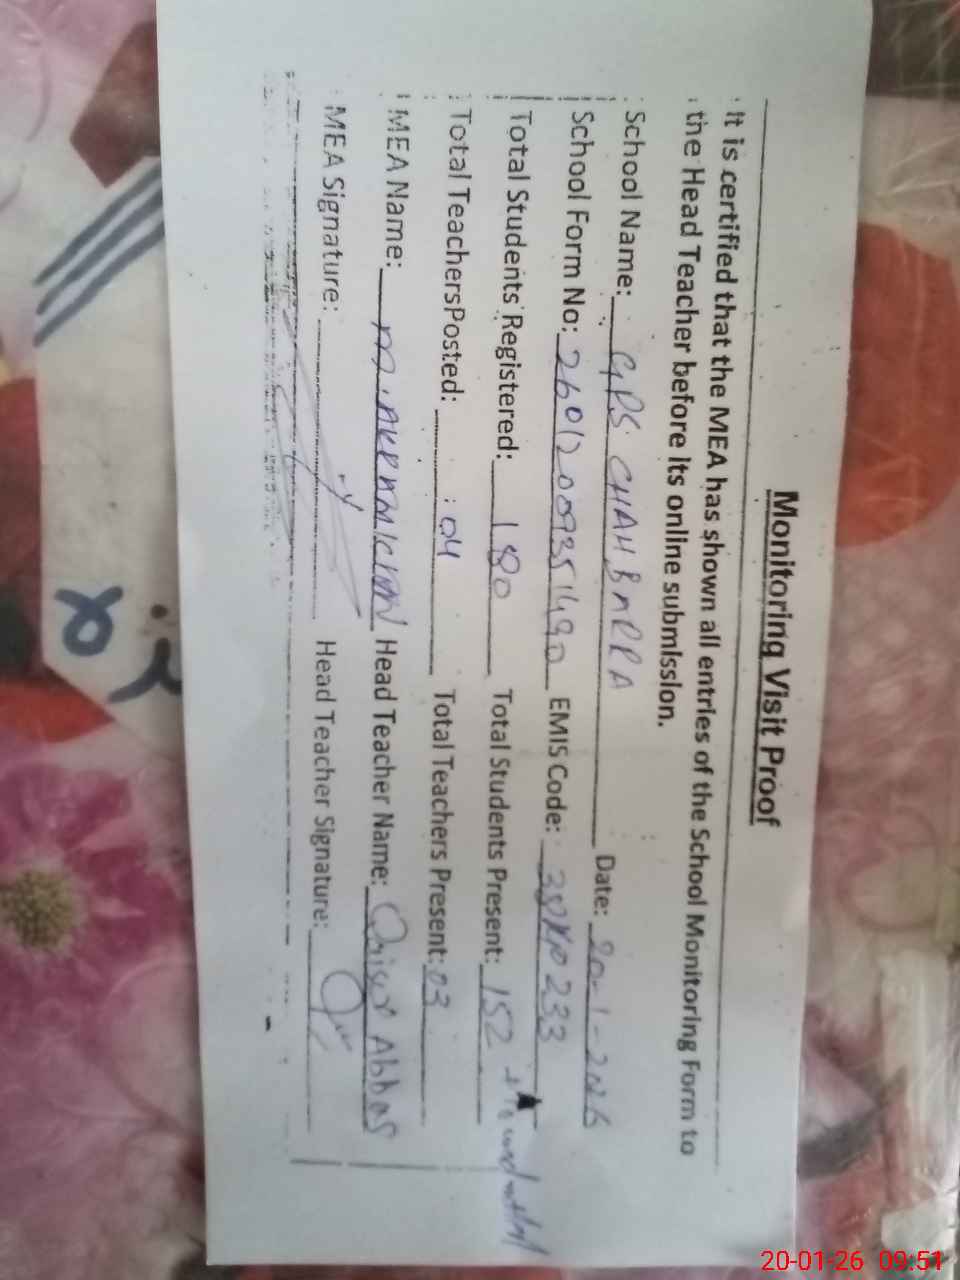 Monitoring Visit Proof
It is certified that the MEA has shown all entries of the School Monitoring Form to
the Head Teacher before its online submission.
School Name: GPS CHAH BARRA Date: 20-1-2026
School Form No: 26012009351490 EMIS Code: 233
Total Students Registered: 180 Total Students Present: 152
Total TeachersPosted: 04 Total Teachers Present: 03
MEA Name: Head Teacher Name: Qaiser Abbas
MEA Signature: Head Teacher Signature:
20-01-26 09:51